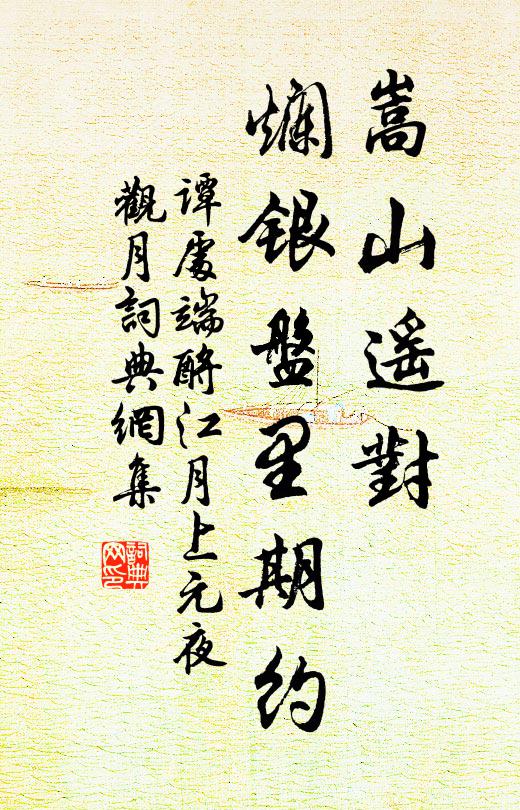 嵩山遥對
爛銀盤里期約
谭處端酹江月上元夜
觀月詞典網集
詞典
网印